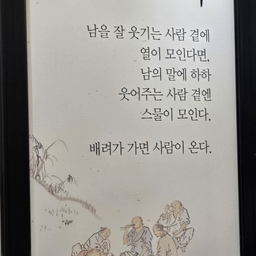 남을 잘 웃기는 사람 곁에
열이 모인다면,
남의 말에 하하
웃어주는 사람 곁엔
스물이 모인다.
배려가 가면 사람이 온다.